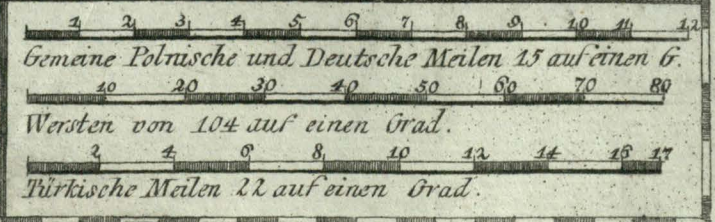 1 2 3 4 5 6 7 8 9 10 11 12
Gemeine Polnische und Deutsche Meilen 15 auf einen G.
10 20 30 40 50 60 70 80
Wersten von 104 auf einen Grad.
2 4 6 8 10 12 14 16 17
Türkische Meilen 22 auf einen Grad.